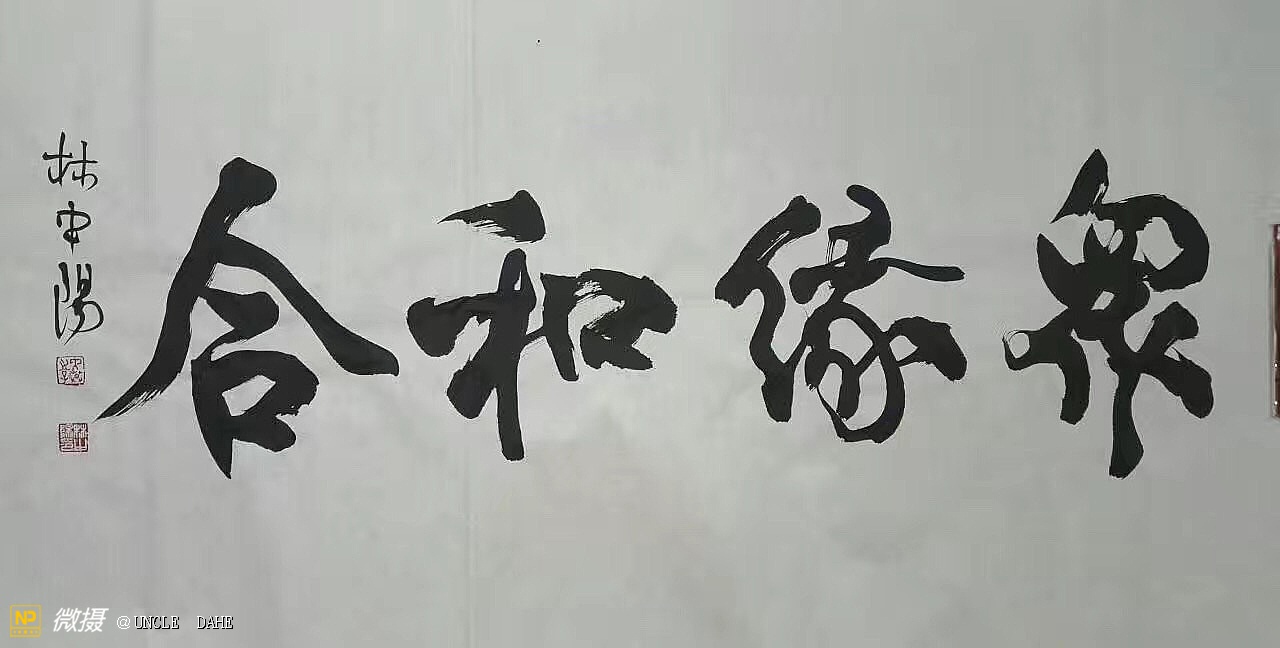 眾緣和合
林中陽
NP
微摄 @UNCLE DAHE